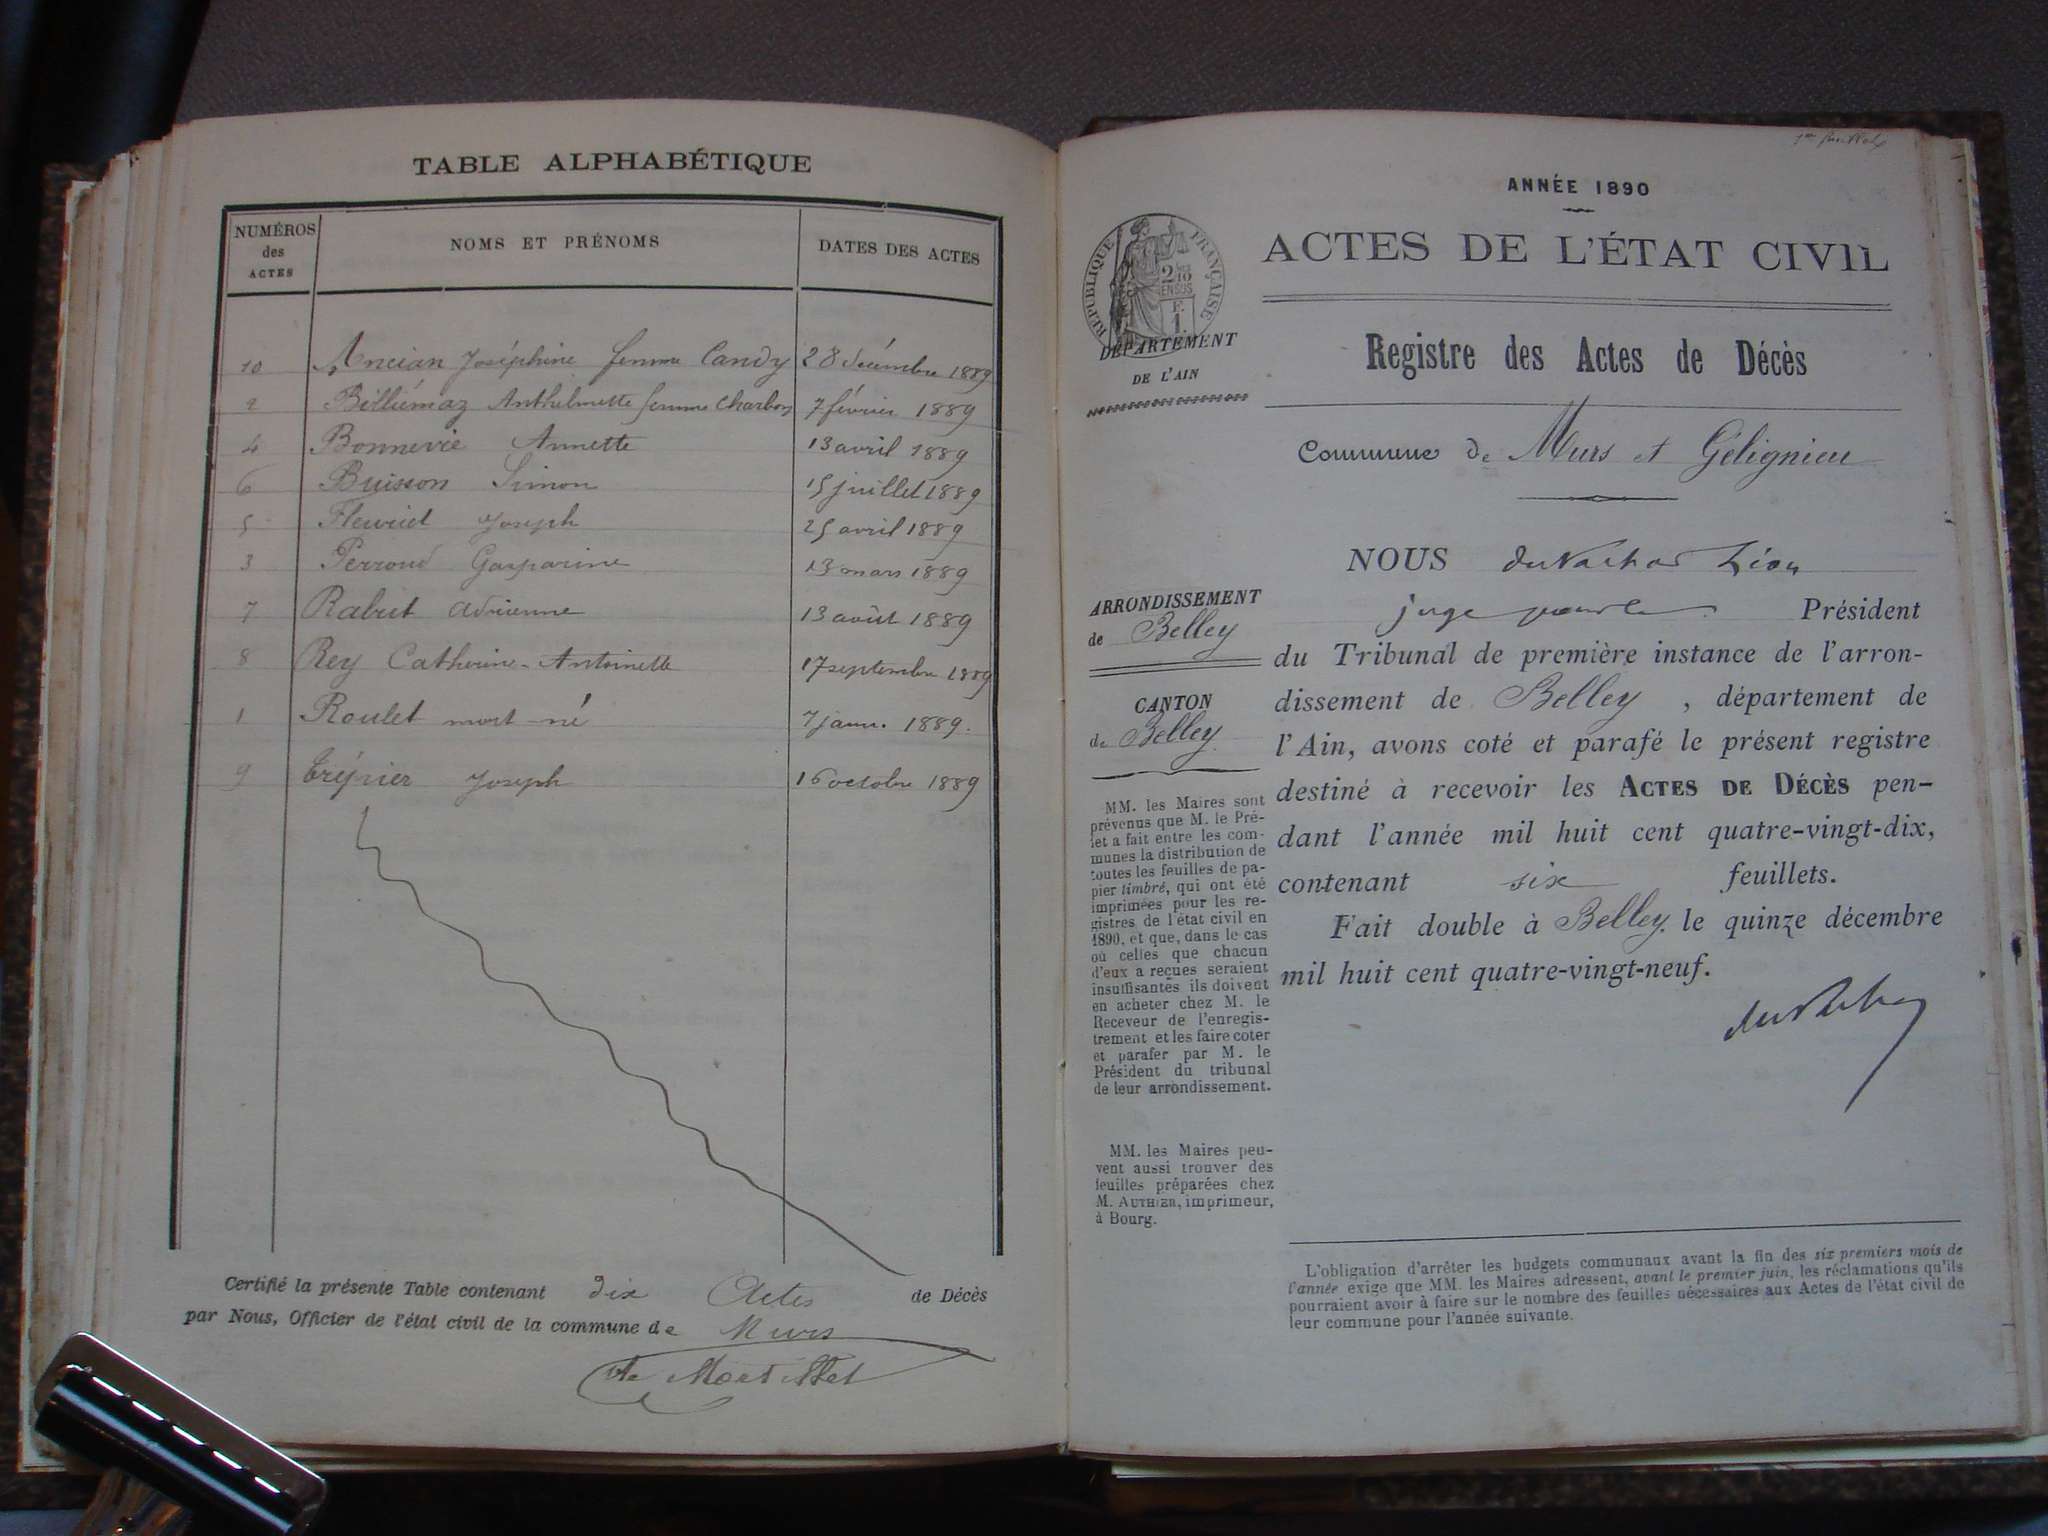 TABLE ALPHABÉTIQUE
NUMÉROS des ACTES NOMS ET PRÉNOMS DATES DES ACTES
10 Ancian Joséphine femme Candy 28 décembre 1889
2 Billiémaz Anthelmette femme Charbon 7 février 1889
4 Bonnevie Annette 13 avril 1889
6 Buisson Simon 15 juillet 1889
5 Fleuriet Joseph 25 avril 1889
3 Perroud Gasparine 13 mars 1889
7 Rabut Adrienne 13 août 1889
8 Rey Catherine-Antoinette 17 septembre 1889
1 Roulet mort-né 7 janv. 1889.
9 Trépier Joseph 16 octobre 1889
Certifié la présente Table contenant dix Actes de Décès
par Nous, Officier de l'état civil de la commune de Murs
de Mortillet
ANNÉE 1890
ACTES DE L'ÉTAT CIVIL
RÉPUBLIQUE FRANÇAISE
2/10 EN SUS
F. 1.
DÉPARTEMENT
DE L'AIN
Registre des Actes de Décès
Commune de Murs et Gélignieu
ARRONDISSEMENT
de Belley
CANTON
de Belley
MM. les Maires sont
prévenus que M. le Pré-
fet a fait entre les com-
munes la distribution de
toutes les feuilles de pa-
pier timbré, qui ont été
imprimées pour les re-
gistres de l'état civil en
1890, et que, dans le cas
où celles que chacun
d'eux a reçues seraient
insuffisantes ils doivent
en acheter chez M. le
Receveur de l'enregis-
trement et les faire coter
et parafer par M. le
Président du tribunal
de leur arrondissement.
MM. les Maires peu-
vent aussi trouver des
feuilles préparées chez
M. AUTHIER, imprimeur,
à Bourg.
NOUS Léon
juge Président
du Tribunal de première instance de l'arron-
dissement de Belley, département de
l'Ain, avons coté et parafé le présent registre
destiné à recevoir les ACTES DE DÉCÈS pen-
dant l'année mil huit cent quatre-vingt-dix,
contenant six feuillets.
Fait double à Belley, le quinze décembre
mil huit cent quatre-vingt-neuf.
L'obligation d'arrêter les budgets communaux avant la fin des six premiers mois de
l'année exige que MM. les Maires adressent, avant le premier juin, les réclamations qu'ils
pourraient avoir à faire sur le nombre des feuilles nécessaires aux Actes de l'état civil de
leur commune pour l'année suivante.